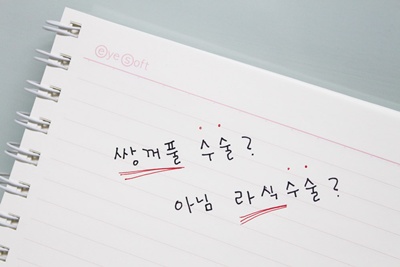 eyesoft
쌍꺼풀 수술?
아님 라식수술?